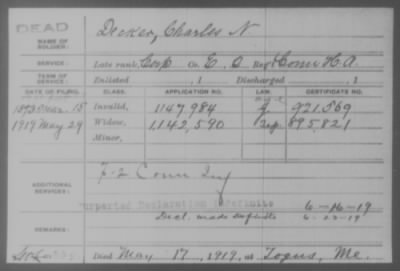 DEAD
NAME OF SOLDIER: Decker, Charles N
SERVICE: Late rank, Corp Co. E, Reg't Conn H.A.
TERM OF SERVICE: Enlisted , 1 Discharged , 1
DATE OF FILING. CLASS. APPLICATION NO. LAW. CERTIFICATE NO.
1893 15 Invalid, 1147,984 921.569
1919 May 29 Widow, 1,142,590 895,821
Minor,
ADDITIONAL SERVICES: F-2 Conn Inf
Declaration 6-16-19
Decl. made 19
REMARKS:
Died May 17, 1919, at Togus, Me.